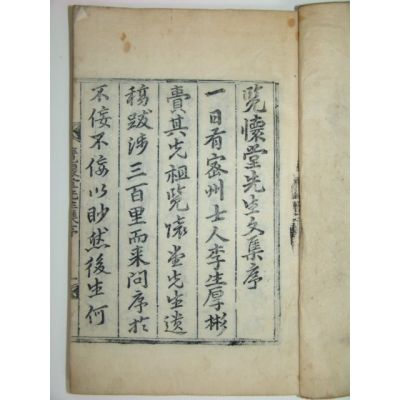 覽懷堂先生文集序
一日有密州士人李生厚彬
賫其先祖覽懷堂先生遺
稿跋涉三百里而来問序於
不佞不佞以眇然後生何